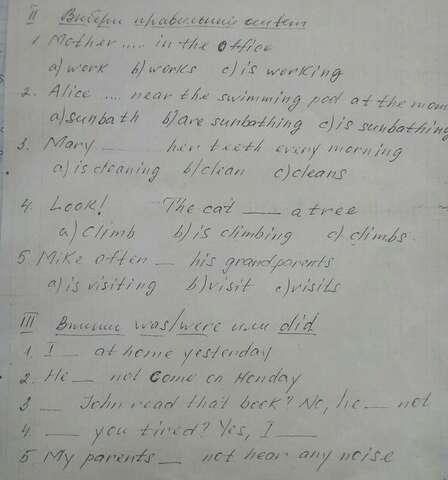 II Выбери правильный ответ
1. Mother .... in the office
a) work b) works c) is working
2. Alice .... near the swimming pool at the mom
a) sunbath b) are sunbathing c) is sunbathing
3. Mary ___ her teeth every morning
a) is cleaning b) clean c) cleans
4. Look! The cat ___ a tree
a) climb b) is climbing c) climbs
5. Mike often _ his grandparents
a) is visiting b) visit c) visits
III Впиши was/were или did
1. I _ at home yesterday
2. He _ not come on Monday
3 _ John read that book? No, he _ not
4. ___ you tired? Yes, I ___
5. My parents _ not hear any noise